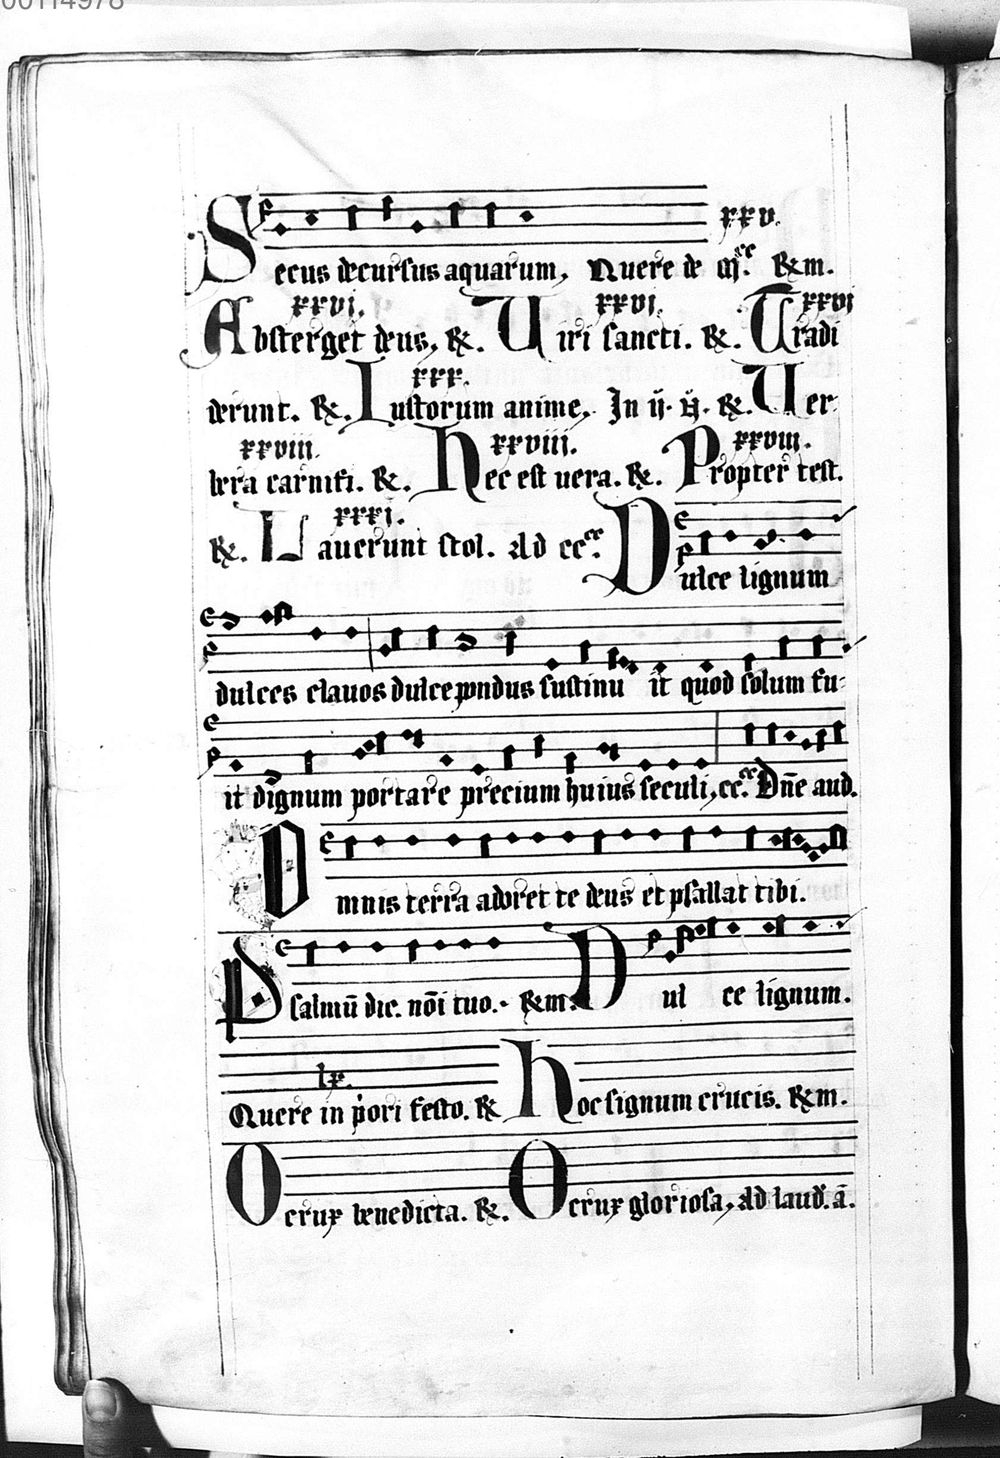 00114978
xxv.
Secus decursus aquarum, Quere de
xxvi. xxvi. xxvi
Absterget deus, &. Uiri sancti. &. Tradi
xxx.
derunt. &. Iustorum anime, In &. Uer
xxviii. xxviii. xxviii.
bera carnifi. &. Hec est uera. &. Propter test.
xxxi.
&. Lauerunt stol. Ad Dulce lignum
dulces clauos dulce pondus sustinu it quod solum fu-
it dignum portare precium huius seculi, Dn̄e aud.
Omnis terra adoret te deus et psallat tibi.
Psalmū dic. nōi tuo. Dul ce lignum.
lx.
Quere in p̄ori festo. & Hoc signum crucis.
O crux benedicta. &. O crux gloriosa, Ad laud. ā.